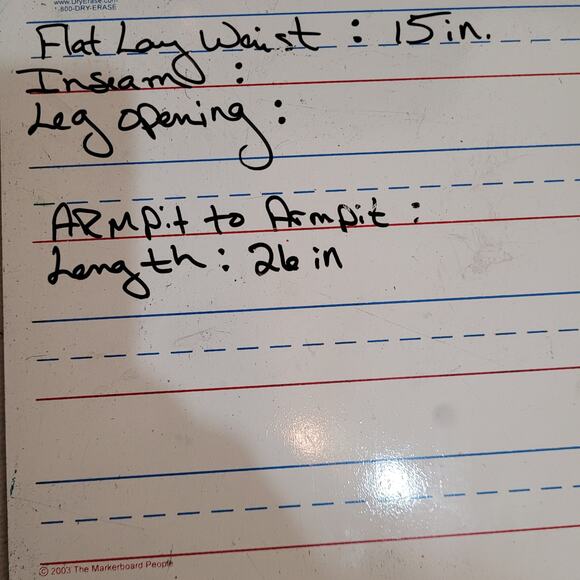 www.DryErase.com
1-800-DRY-ERASE
Flat Lay Waist : 15 in.
Inseam :
Leg opening :
ARMpit to Armpit :
Length : 26 in
© 2003 The Markerboard People